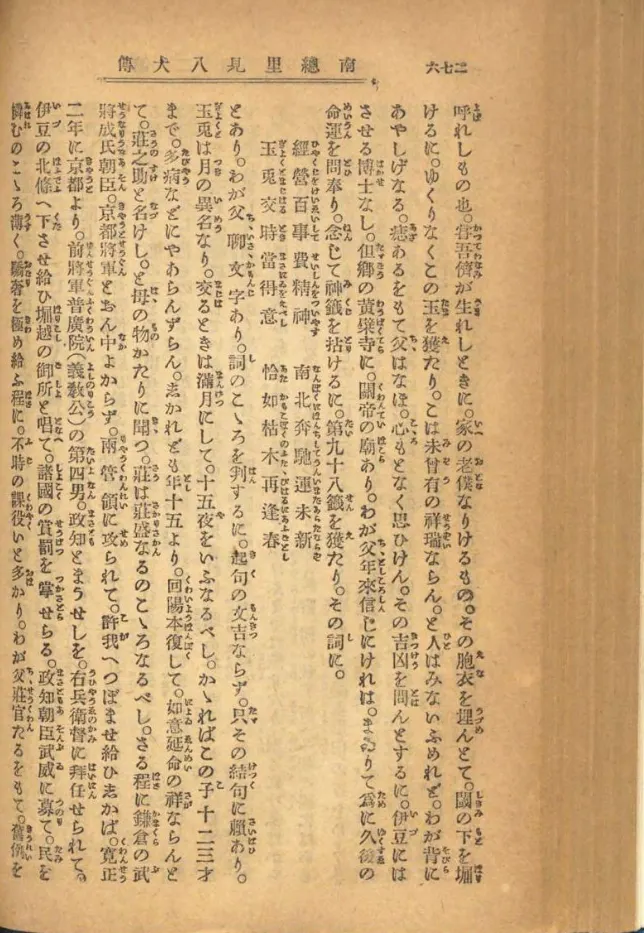 二七六
南總里見八犬傳
呼れしもの也。甞吾儕が生れしときに。家の老僕なりけるもの。その胞衣を埋んとて。閾の下を堀
けるに。ゆくりなくこの玉を獲たり。こは未曾有の祥瑞ならん。と人はみないふめれど。わが背に
あやしげなる。痣あるをもて父はなほ。心もとなく思ひけん。その吉凶を問んとするに。伊豆には
させる博士なし。但郷の黄檗寺に。關帝の廟あり。わが父年來信じにければ。まゐりて爲に久後の
命運を問奉り。念じて神籤を拈けるに。第九十八籤を獲たり。その詞に。
經營百事費精神　南北奔馳運未新
玉兎交時當得意　恰如枯木再逢春
とあり。わが父聊文字あり。詞のこゝろを判するに。起句の文吉ならず。只その結句に賴あり。
玉兎は月の異名なり。交るときは滿月にして。十五夜をいふなるべし。かゝればこの子十二三才
まで。多病などにやあらんずらん。志かれども年十五より。回陽本復して。如意延命の祥ならんと
て。莊之助と名けし。と母の物かたりに聞つ。莊は莊盛なるのこゝろなるべし。さる程に鎌倉の武
將成氏朝臣。京都將軍とおん中よからず。兩管領に攻られて。許我へつぼませ給ひ志かば。寛正
二年に京都より。前將軍普廣院(義敎公)の第四男。政知とまうせしを。右兵衛督に拜任せられて。
伊豆の北條へ下させ給ひ堀越の御所と唱て。諸國の賞罰を掌せらる。政知朝臣武威に募て。民を
憐むのこゝろ薄く。驕奢を極め給ふ程に。不時の課役いと多かり。わが父莊官たるをもて。舊例を